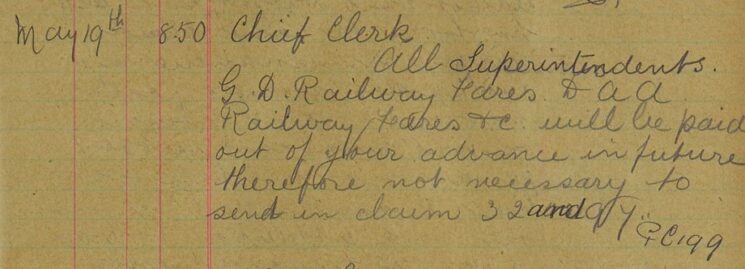 May 19th 8.50 Chief Clerk
All Superintendents.
G. D. Railway Fares D A A
Railway Fares &c. will be paid
out of your advance in future
therefore not necessary to
send in claim 32 and
PC199